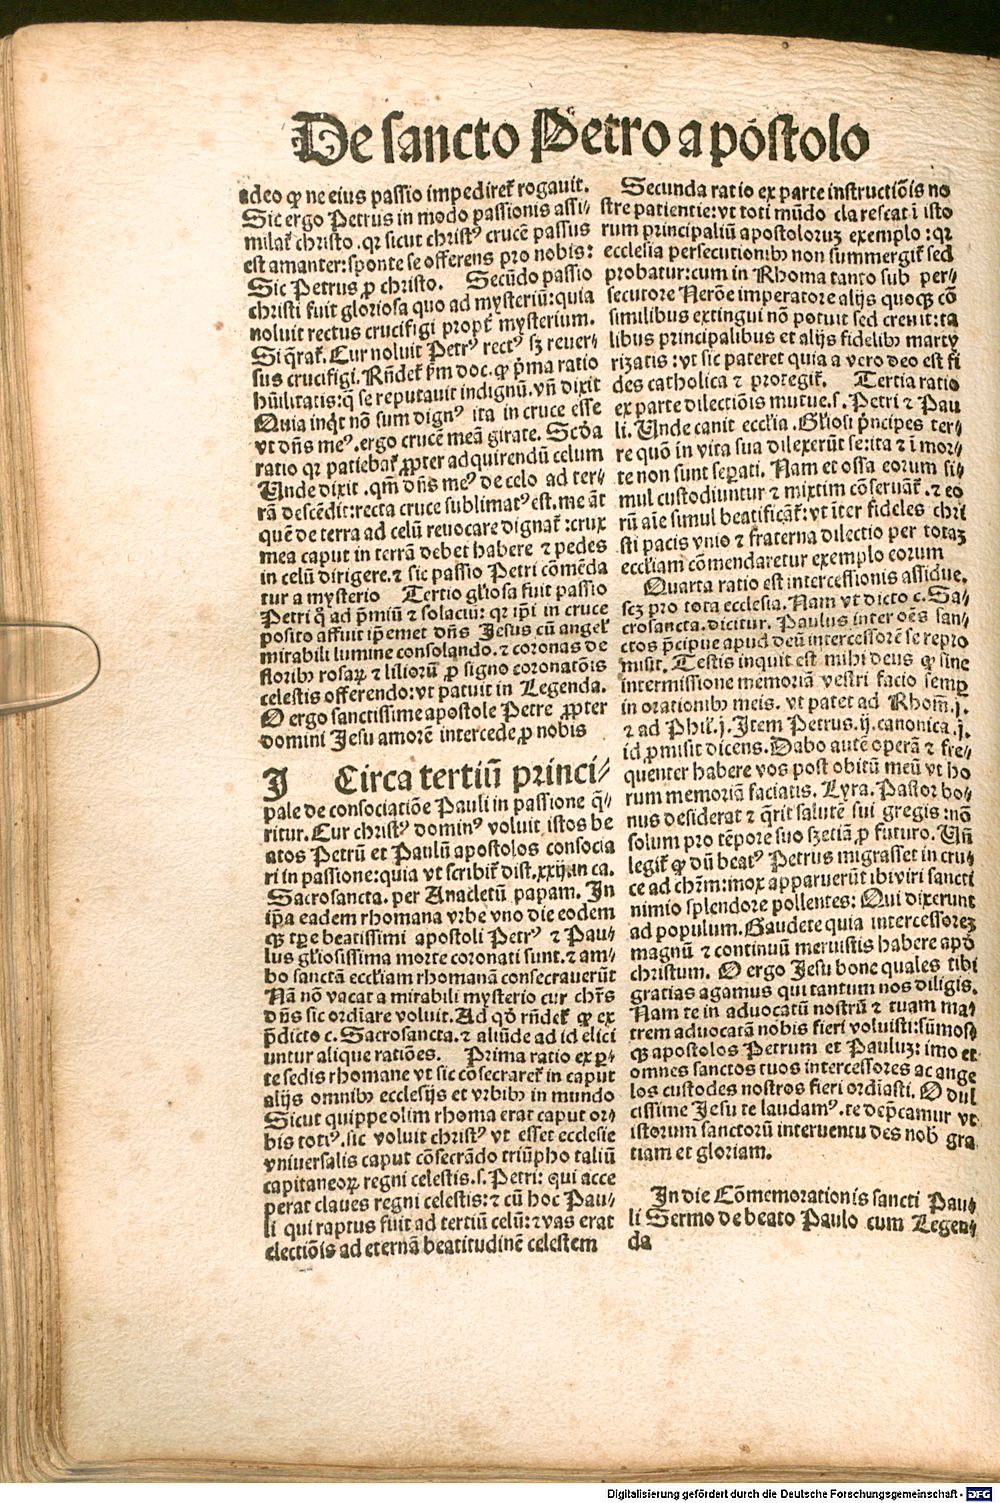 De sancto Petro apostolo
adeo ꝙ ne eius passio impediret᷑ rogauit.
Sic ergo Petrus in modo passionis assi-
milat᷑ christo. qꝛ sicut christꝰ crucē passus
est amanter: sponte se offerens pro nobis:
Sic Petrus ꝓ christo. Secūdo passio
christi fuit gloriosa quo ad mysteriū: quia
noluit rectus crucifigi propt᷑ mysterium.
Si q̄rat᷑. Cur noluit Petrꝰ rectꝰ sꝫ reuer-
sus crucifigi. Rn̄det᷑ ẜm doc. ꝙ p̄ma ratio
hūilitatis: q̄ se reputauit indignū. vn̄ dixit
Quia inq̇t nō sum dignꝰ ita in cruce esse
vt dn̄s meꝰ. ergo crucē meā girate. Scd̓a
ratio qꝛ patiebat᷑ ꝓpter ad quirendū celum
Unde dixit. qm̄ dn̄s meꝰ de celo ad ter-
rā descēdit: recta cruce sublimatꝰ est. me āt
quē de terra ad celū reuocare dignat᷑: crux
mea caput in terrā debet habere ⁊ pedes
in celū dirigere. ⁊ sic passio Petri cōmēda
tur a mysterio Tertio gl̓iosa fuit passio
Petri q̊ ad p̄miū ⁊ solaciū: qꝛ ip̄i in cruce
posito affuit ip̄emet dn̄s Jesus cū angel᷑
mirabili lumine consolando. ⁊ coronas de
floribꝫ rosaꝝ ⁊ liliorū ꝓ signo coronatōis
celestis offerendo: vt patuit in Legenda.
O ergo sanctissime apostole Petre ꝓpter
domini Jesu amorē intercede ꝓ nobis
J Circa tertiū princi-
pale de consociatiōe Pauli in passione q̄-
ritur. Cur christꝰ dominꝰ voluit istos be
atos Petrū et Paulū apostolos consocia
ri in passione: quia vt scribit᷑ dist. xxij. in ca.
Sacrosancta. per Anacletū papam. In
ip̄a eadem rhomana vrbe vno die eodem
qꝫ tꝑe beatissimi apostoli Petrꝰ ⁊ Pau-
lus gl̓iosissima morte coronati sunt. ⁊ am-
bo sanctā eccl̓iam rhomanā consecrauerūt
Nā nō vacat a mirabili mysterio cur chr̄s
dn̄s sic ordīare voluit. Ad qd̓ rn̄det᷑ ꝙ ex
p̄dicto c. Sacrosancta. ⁊ aliūde ad id elici
untur alique ratiōes. Prima ratio ex ꝑ-
te sedis rhomane vt sic cōsecraret᷑ in caput
alijs omnibꝫ ecclesijs et vrbibꝫ in mundo
Sicut quippe olim rhoma erat caput or-
bis totiꝰ. sic voluit christꝰ vt esset ecclesie
vniuersalis caput cōsecrādo triūpho taliū
capitaneoꝝ regni celestis. s. Petri: qui acce
perat claues regni celestis: ⁊ cū hoc Pau-
li qui raptus fuit ad tertiū celū: ⁊ vas erat
electiōis ad eternā beatitudinē celestem
Secunda ratio ex parte instructiōis no
stre patientie: vt toti mūdo clarescat ī isto
rum principaliū apostoloruꝫ exemplo: qꝛ
ecclesia persecutionibꝫ non summergit᷑ sed
probatur: cum in Rhoma tanto sub per-
secutore Nerōe imperatore alijs quoqꝫ cō
similibus extingui nō potuit sed creuit: ta
libus principalibus et alijs fidelibꝫ marty
rizatis: vt sic pateret quia a vero deo est fi
des catholica ⁊ protegit᷑. Tertia ratio
ex parte dilectiōis mutue. s. Petri ⁊ Pau
li. Unde canit eccl̓ia. Gl̓iosi p̄ncipes ter-
re quō in vita sua dilexerūt se: ita ⁊ ī mor-
te non sunt seꝑati. Nam et ossa eorum si-
mul custodiuntur ⁊ mixtim cōseruāt᷑. ⁊ eo
rū aīe simul beatificāt᷑: vt īter fideles chri
sti pacis vnio ⁊ fraterna dilectio per totaꝫ
eccl̓iam cōmendaretur exemplo eorum
Quarta ratio est intercessionis assidue.
scꝫ pro tota ecclesia. Nam vt dicto c. Sa-
crosancta. dicitur. Paulus inter oēs san-
ctos p̄cipue apud deū intercessorē se repro
misit. Testis inquit est mihi deus ꝙ sine
intermissione memoriā vestri facio semꝑ
in orationibꝫ meis. vt patet ad Rhom̄. j.
⁊ ad Phil᷑. j. Item Petrus. ij. canonica. j.
id ꝓmisit dicens. Dabo autē operā ⁊ fre-
quenter habere vos post obitū meū vt ho
rum memoriā faciatis. Lyra. Pastor bo-
nus desiderat ⁊ q̄rit salutē sui gregis: nō
solum pro tēpore suo sꝫ etiā ꝓ futuro. Un̄
legit᷑ ꝙ dū beatꝰ Petrus migrasset in cru-
ce ad ch̄m: mox apparuerūt ibi viri sancti
nimio splendore pollentes: Qui dixerunt
ad populum. Gaudete quia intercessoreꝫ
magnū ⁊ continuū meruistis habere apd̓
christum. O ergo Jesu bone quales tibi
gratias agamus qui tantum nos diligis.
Nam te in aduocatū nostrū ⁊ tuam ma-
trem aduocatā nobis fieri voluisti: sūmos
qꝫ apostolos Petrum et Pauluꝫ: imo et
omnes sanctos tuos intercessores ac ange
los custodes nostros fieri ordiasti. O dul
cissime Jesu te laudamꝰ. te dep̄camur vt
istorum sanctorū interuentu des nob̓ gra
tiam et gloriam.
In die Cōmemorationis sancti Pau-
li Sermo de beato Paulo cum Legen-
da
Digitalisierung gefördert durch die Deutsche Forschungsgemeinschaft - DFG